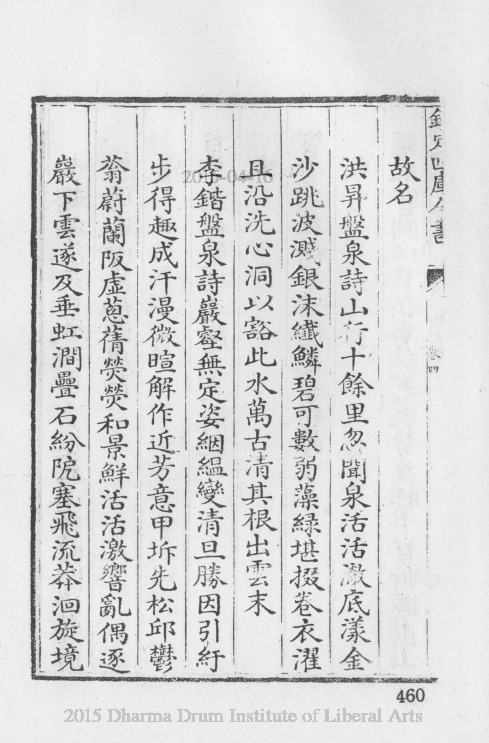 欽定四庫全書
卷四
故名
洪昇盤泉詩山行十餘里忽聞泉活活澈底漾金
沙跳波濺銀沫纖鱗碧可數弱藻綠堪掇卷衣濯
且沿洗心洞以豁此水萬古清其根出雲末
李鍇盤泉詩巖壑無定姿絪縕變清旦勝因引紆
步得趣成汗漫微暄解作近芳意甲坼先松邱鬱
蓊蔚蘭阪虛蔥蒨熒熒和景鮮活活激響亂偶逐
巖下雲遂及垂虹澗疊石紛阨塞飛流莽洄旋境
460
2015 Dharma Drum Institute of Liberal Arts